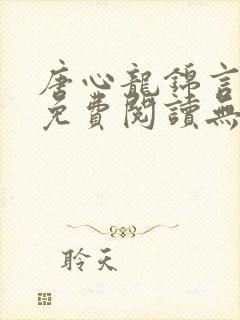 唐心龍錦言
免費閱讀無
聆天